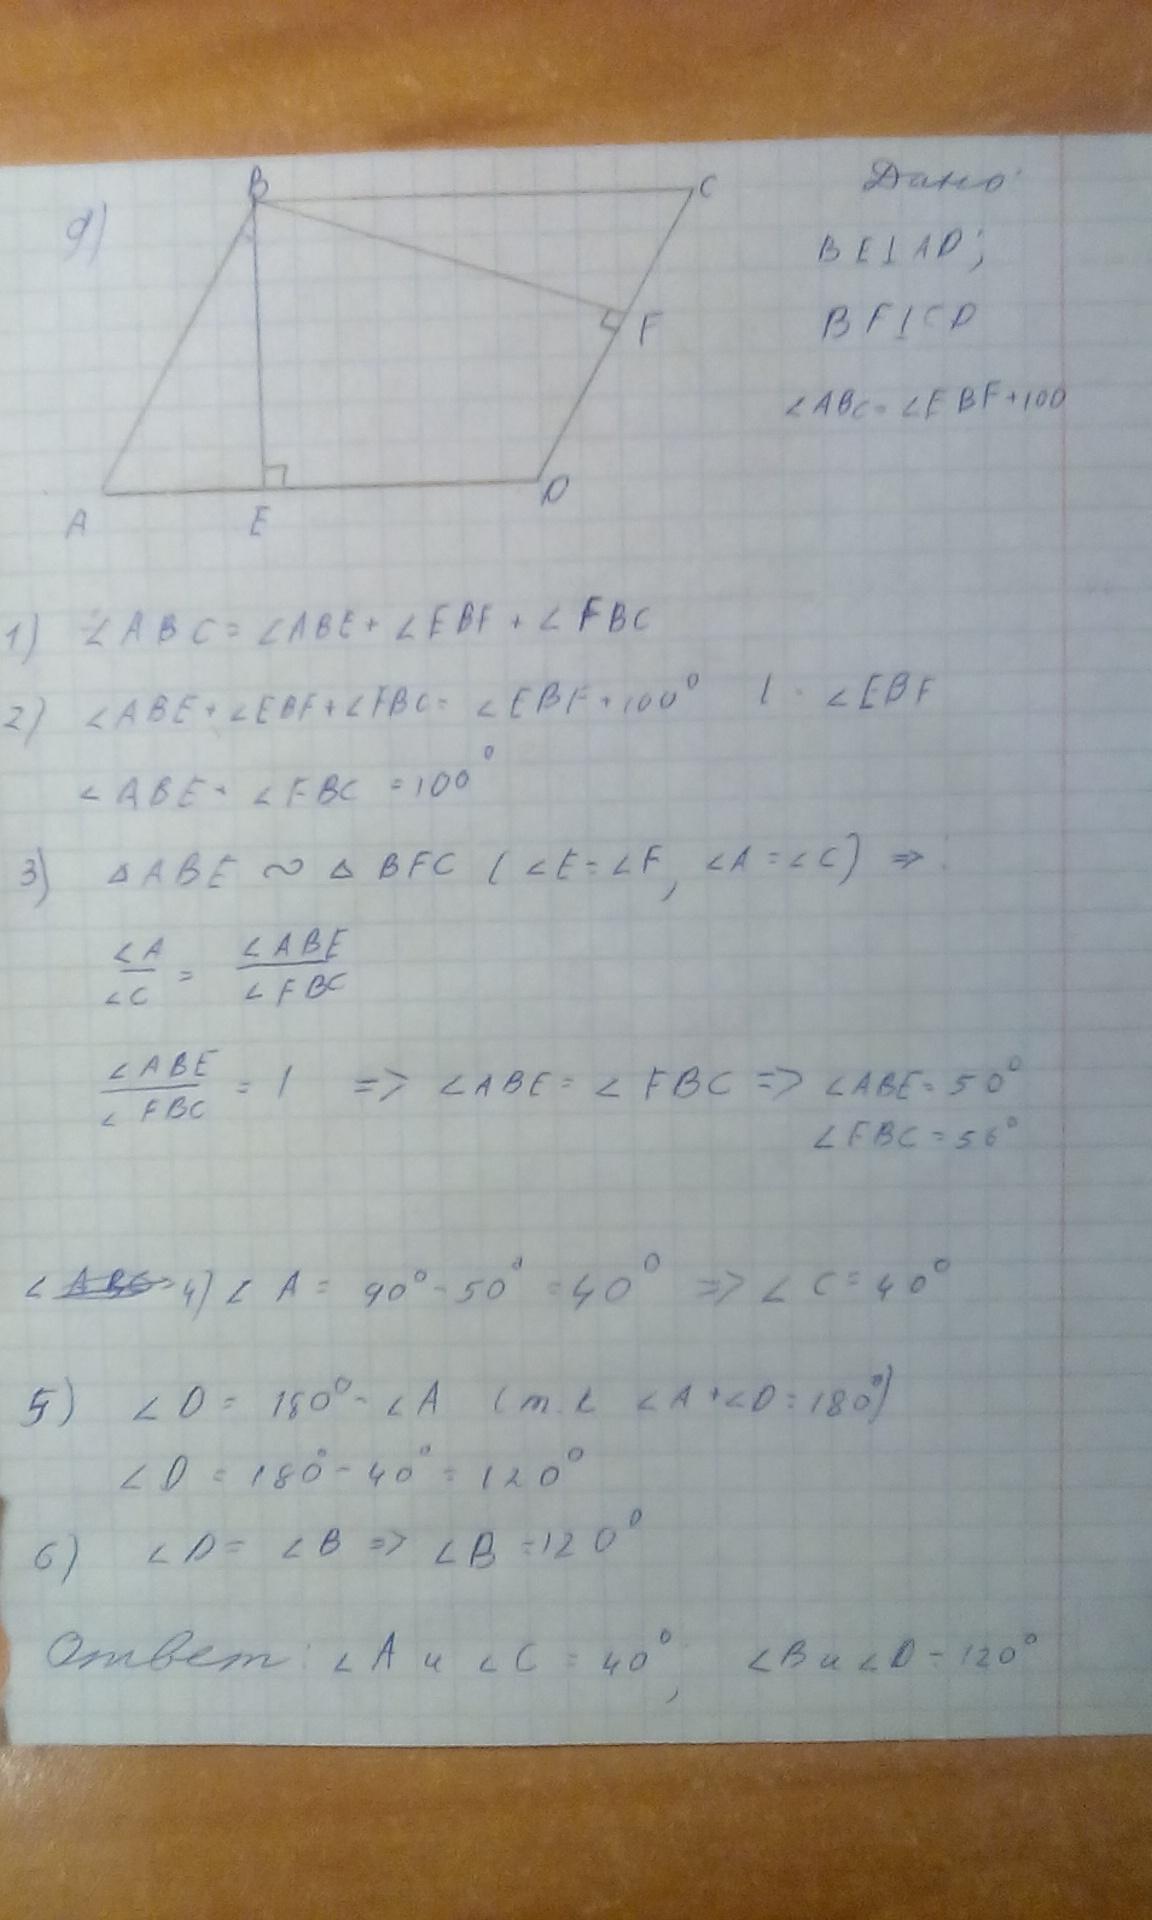 B
C
Дано:
д)
BE⊥AD;
BF⊥CD
F
∠ABC=∠EBF+100
A
E
D
1) ∠ABC=∠ABE+∠EBF+∠FBC
2) ∠ABE+∠EBF+∠FBC=∠EBF+100° | - ∠EBF
∠ABE+∠FBC=100°
3) △ABE ∾ △BFC (∠E=∠F, ∠A=∠C) =>
∠A/∠C = ∠ABE/∠FBC
∠ABE/∠FBC = 1 => ∠ABE=∠FBC => ∠ABE=50°
∠FBC=50°
4) ∠A=90°-50°=40° => ∠C=40°
5) ∠D=180°-∠A (т.к ∠A+∠D=180°)
∠D=180°-40°=120°
6) ∠D=∠B => ∠B=120°
Ответ: ∠A и ∠C=40°; ∠B и ∠D=120°